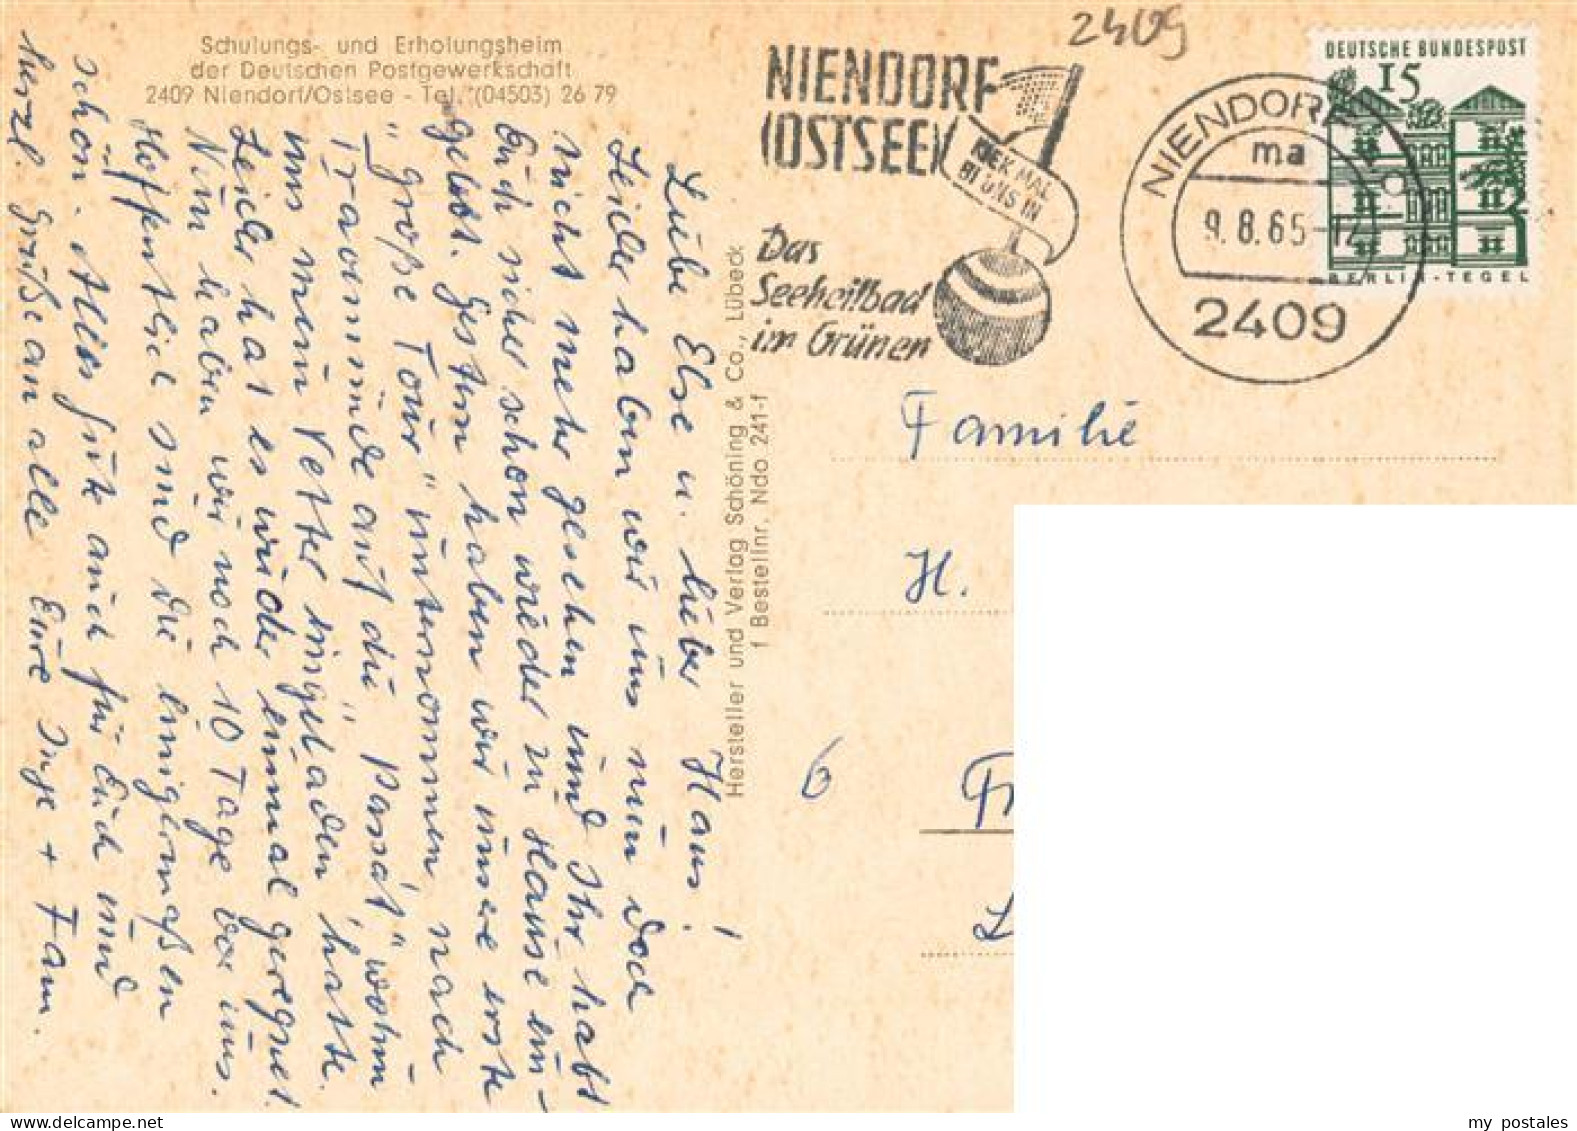 Schulungs- und Erholungsheim
der Deutschen Postgewerkschaft
2409 Niendorf/Ostsee - Tel. (04503) 26 79
2409
NIENDORF
(OSTSEE)
KIEK MAL
BI UNS IN
Das
Seeheilbad
im Grünen
NIENDORF
ma
9.8.65-12
2409
DEUTSCHE BUNDESPOST
15
BERLIN-TEGEL
Liebe Else u. lieber Hans!
Leider haben wir uns nun doch
nicht mehr gesehen und Ihr habt
Euch sicher schon wieder zu Hause ein-
gelebt. Gestern haben wir unsere erste
"große Tour" unternommen nach
Travemünde auf die "Passat", wohin
uns mein Vetter eingeladen hatte.
Leider hat es wieder einmal geregnet.
Nun haben wir noch 10 Tage vor uns.
Hoffentlich sind die einigermaßen
schön. Alles Gute auch für Euch und
herzl. Grüße an alle Eure Inge + Fam.
Hersteller und Verlag Schöning & Co., Lübeck
f Bestellnr. Ndo 241-f
Familie
H.
6
my postales